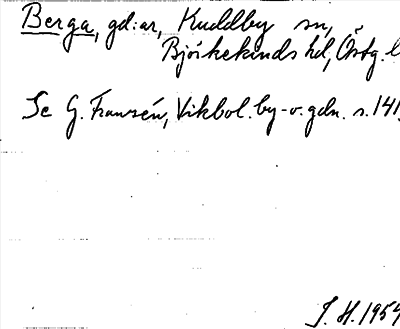 Berga, gd:ar, Kuddby sn,
Björkekinds hd, Östg. l
Se G. Franzén, Vikbol. by-o. gdn. s. 141,
J. H. 1954